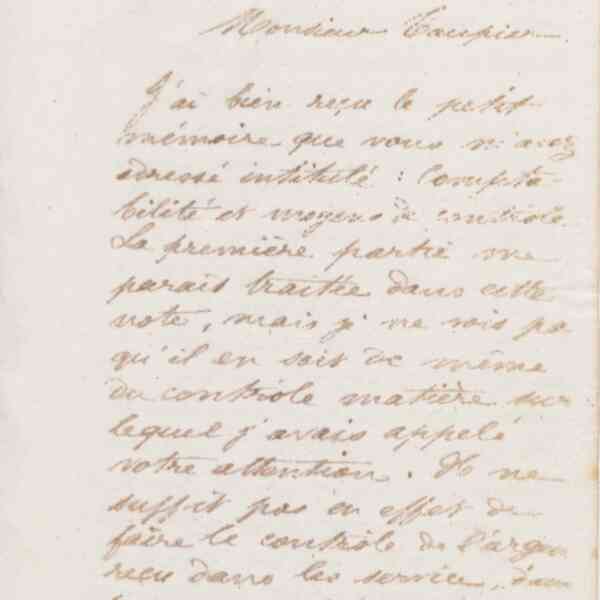 Monsieur Taupier
J'ai bien reçu le petit
mémoire que vous m'avez
adressé intitulé : Compta-
bilité et moyens de contrôle.
La première partie me
parait traitée dans cette
note, mais je ne vois pa
qu'il en soit de même
du contrôle matière sur
lequel j'avais appelé
votre attention. Il ne
suffit pas en effet de
faire le contrôle de l'argen
reçu dans les service, dans